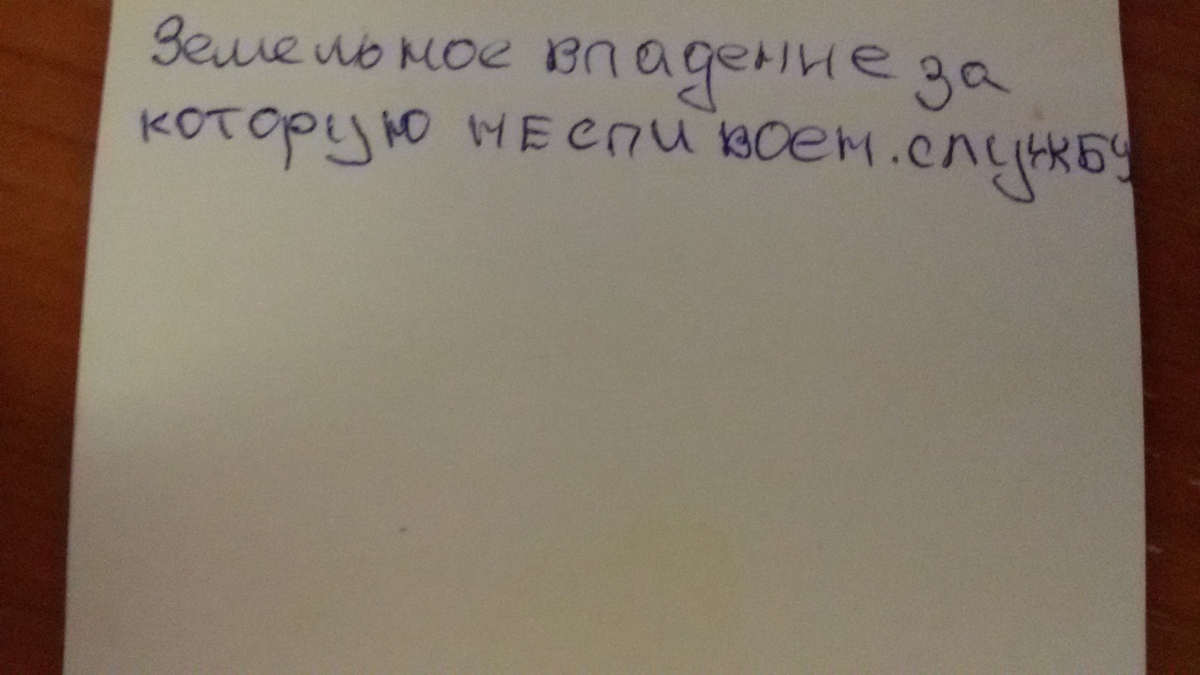 Земельное владение за
которую нЕсли воен. службу